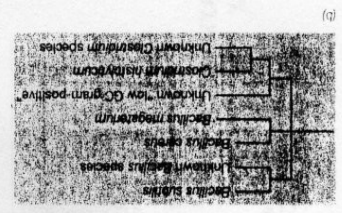 Bacillus subtilis
Unknown Bacillus species
Bacillus cereus
Bacillus megaterium
Unknown "low GC gram-positive"
Clostridium histolyticum
Unknown Clostridium species
(b)